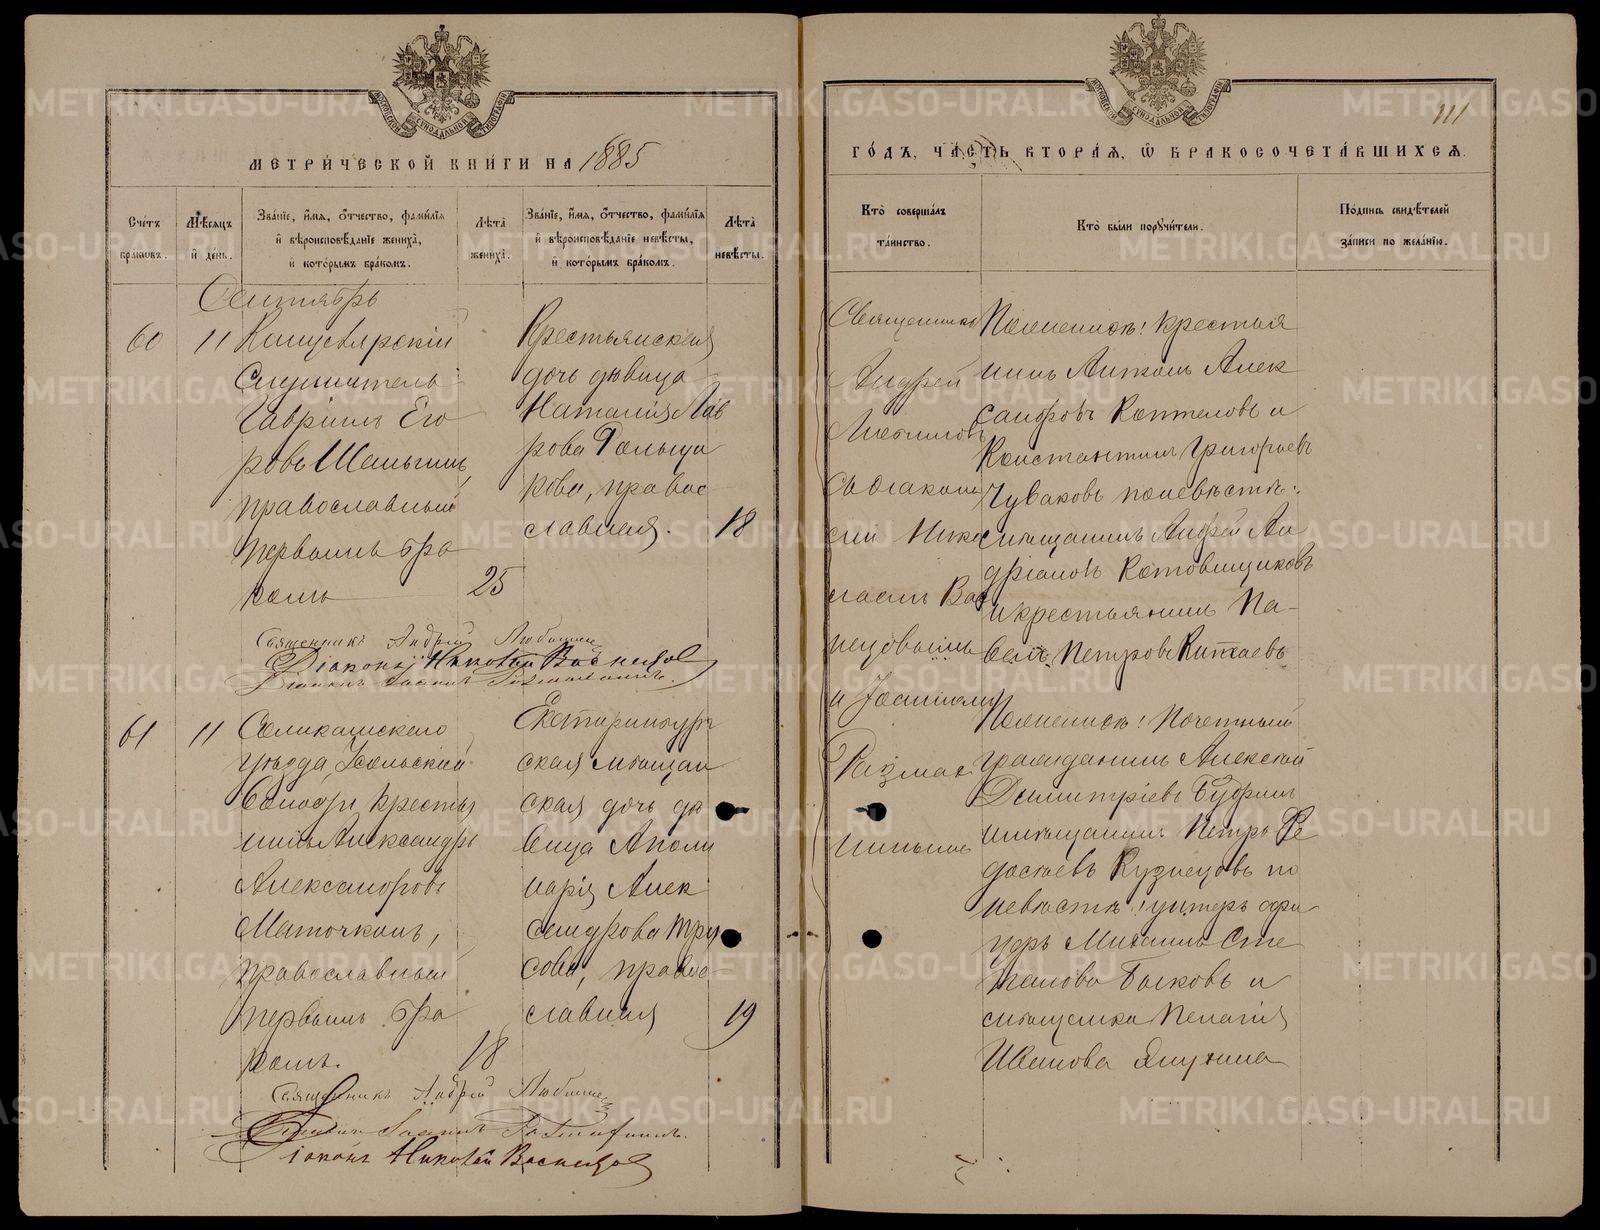 МЕТРИ́ЧЕСКОЙ КНИ́ГИ НА 1885
Сче́тъ браковъ.
Мѣ́сяцъ и҆ де́нь.
Зва́нїе, и҆́мѧ, ѻ҆́тчество, фами́лїѧ и҆ вѣроисповѣ́данїе жениха̀, и҆ кото́рымъ бра́комъ.
Лѣ́та жениха̀.
Зва́нїе, и҆́мѧ, ѻ҆́тчество, фами́лїѧ и҆ вѣроисповѣ́данїе невѣ́сты, и҆ кото́рымъ бра́комъ.
Лѣ́та невѣ́сты.
Сентябрь
60
11
Канцелярскій
Служитель
Гавріилъ Его
ровъ Шаньгинъ,
православный
первымъ бра
комъ
25
Крестьянская
дочь дѣвица
Наталія Лав
рова
рова, правос
славная.
18
Священникъ Андрей Любимовъ
Діаконъ Николай Васнецов
61
11
Соликамскаго
уѣзда, Усольской
Волости, крестья
нинъ Александръ
Александровъ
Маточкинъ,
православный
первымъ бра
комъ.
18
Екатеринбург
ская мѣщан
ская дочь дѣ
вица Аполи
нарія Алек
сандрова Тру
сова, правос
славная
19
Священникъ Андрей Любимовъ
Діаконъ Николай Васнецов
111
ГО́ДЪ, ЧА́СТЬ ВТОРА́Ѧ, Ѽ БРАКОСОЧЕТА́ВШИХСѦ.
Кто̀ соверша́лъ та́инство.
Кто̀ бы́ли поручи́тели.
По́дпись свидѣ́телей за́писи по жела́нїю.
Священникъ
Андрей
Любимовъ
съ діакона
ми Нико
лаемъ Вас
нецовымъ
и Іоанномъ
Размах
нинымъ
По женихѣ: крестья
нинъ Антонъ Алек
сандровъ Коптеловъ и
Константинъ Григорьевъ
Чуваковъ по невѣстѣ:
мѣщанинъ Андрей Ан
дріановъ Котовщиковъ
и крестьянинъ Па-
велъ Петровъ Китаевъ
По женихѣ: Почетный
гражданинъ Алексей
Димитріевъ
и мѣщанинъ Петръ Ѳе
досѣевъ Кузнецовъ по
невѣстѣ: унтеръ офи
церъ Михаилъ Сте
пановъ Быковъ и
мѣщанка Пелагія
Иванова Ялунина
METRIKI.GASO-URAL.RU